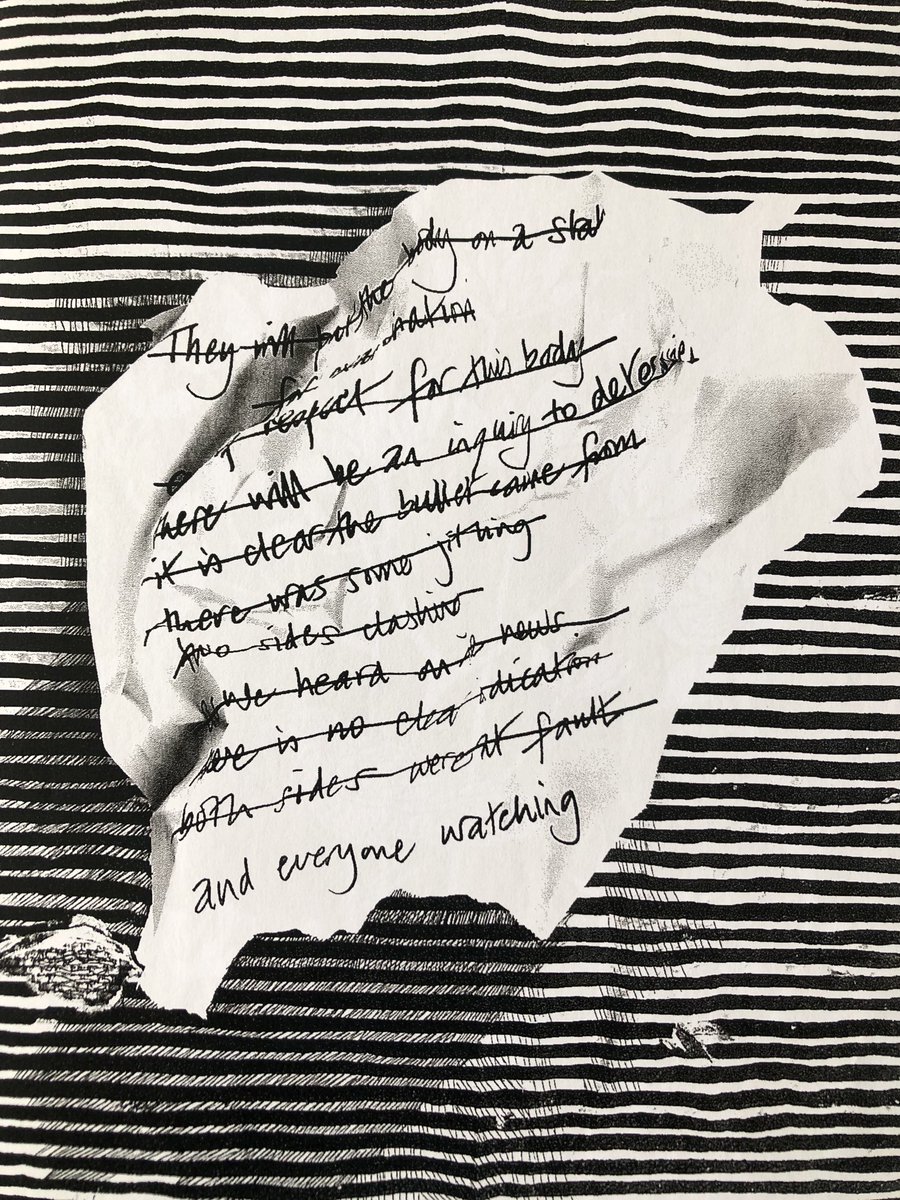 They will put the body on a slab
for
respect for this body
here will be an inquiry to
it is clear the bullet came from
there was some jostling
two sides clashing
we heard on news
ere is no clea dication
both sides were at fault
and everyone watching